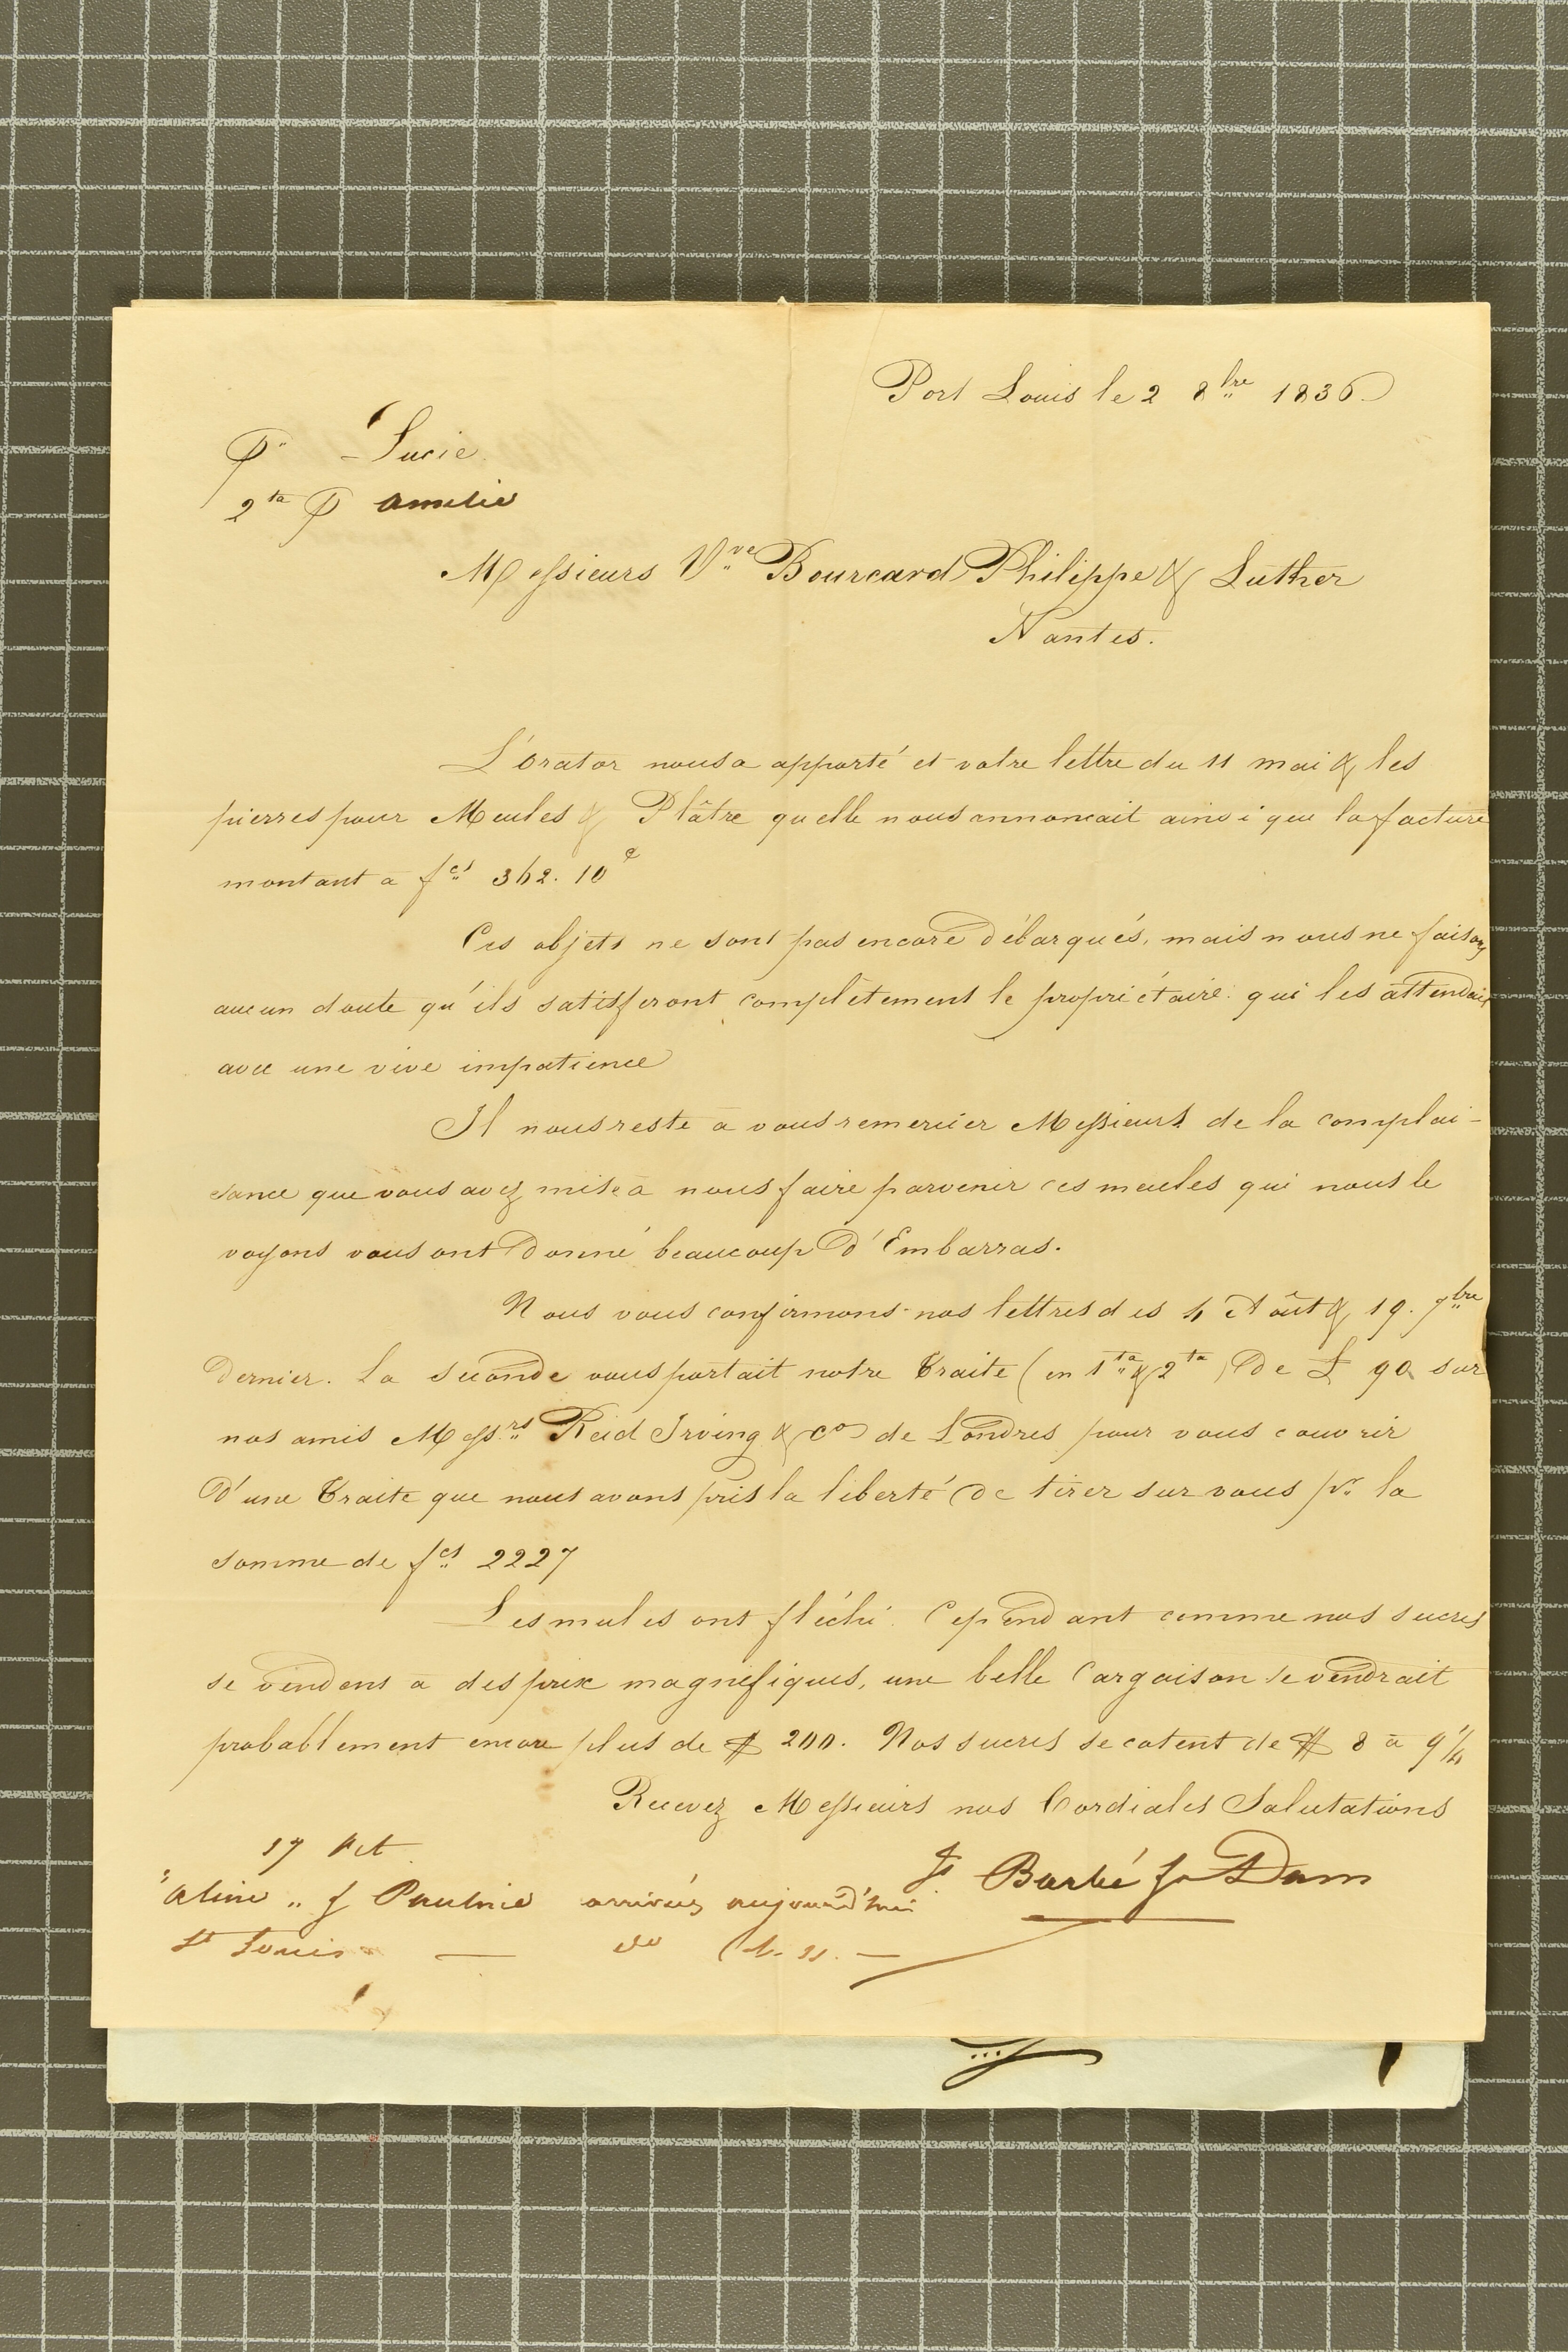 Port Louis le 2 8bre 1836
Pr Lucie
2ta P Amelie
Messieurs Vve Bourcard Philippe & Luther
Nantes.
L'Orator nous a apporté et votre lettre du 11 mai & les
pierres pour Meules & Plâtre quelle nous annoncait ainsi que la facture
montant a fcs 362. 10c
Ces objets ne sont pas encore débarqués, mais nous ne faisons
aucun doute qu'ils satisferont complètement le propriétaire qui les attendait
avec une vive impatience
Il nous reste a vous remercier Messieurs de la complai-
sance que vous avez mise à nous faire parvenir ces meules qui nous le
voyons vous ont donné beaucoup d'Embarras.
Nous vous confirmons nos lettres des 4 Août & 19. 7bre
dernier. La seconde vous portait notre Traite (en 1ta & 2ta) de £ 90 sur
nos amis Messrs Reid Irving & Co de Londres pour vous couvrir
d'une Traite que nous avons pris la liberté de tirer sur vous pr la
somme de fcs 2227
Les mules ont fléchi. Cependant comme nos sucres
se vendens a des prix magnifiques, une belle Cargaison se vendrait
probablement encore plus de $ 200. Nos sucres se cotent de $ 8 à 9 1/4
Recevez Messieurs nos Cordiales Salutations
17 Oct
"Aline" & Pauline arrivées aujourd'hui
Barbé
St Louis — do —